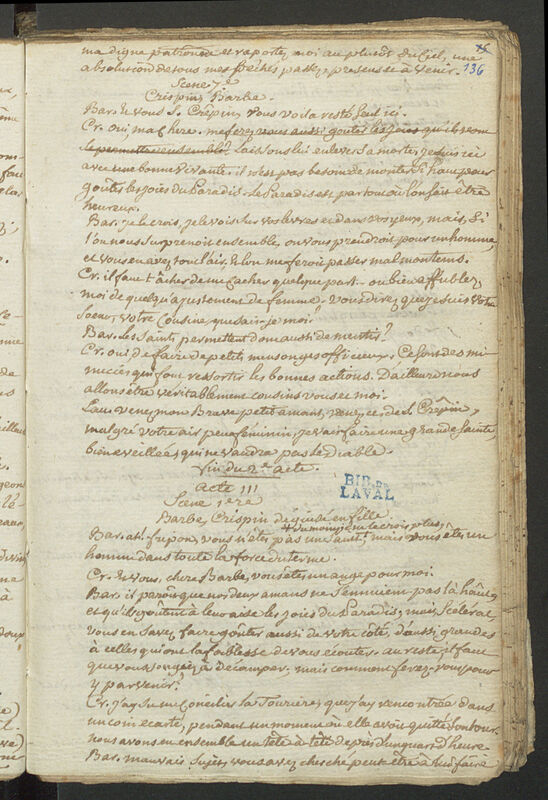 75
136
ma digne patronne et raportez moi au plutôt du Ciel, une
absolution de tous mes péchés passés, presens et à venir.
Scene 7e
Crispin, Barbe.
Bar. Et vous S. Crêpin, vous voila resté seul ici.
Cr. oui, ma chere. me ferez vous aussi goûter les joies qu'ils vont
se permettre ensemble? laissons lui enlever sa morte, je suis ici
avec une bonne vivante. il n'est pas besoin de monter si haut pour
goûter les joies du Paradis. Le Paradis est partout où l'on fait être
heureux.
Bar. Je le crois, je le vois sur vos levres et dans vos yeux, mais, si
l'on nous surprenoit ensemble, on vous prendroit pour un homme,
et vous en avez tout l'air. et l'on me feroit passer mal mon tems.
Cr. il faut tâcher de me cacher quelque part. ou bien affublez
moi de quelqu'ajustement de femme. vous direz que je suis votre
Soeur, votre Cousine, que sais-je moi?
Bar. Les Saints permettent donc aussi de mentir?
Cr. oui, de faire de petits mensonges officieux. Ce sont des
qui font ressortir les bonnes actions. D'ailleurs nous
allons être véritablement cousins vous et moi.
venez mon Brave petit amant, venez, S. Crêpin,
malgré votre air peu féminin, je vais faire une grande Sainte,
bien éveillée, qui ne vaudra pas le diable.
fin du 2e. acte.
BIB. DE
LAVAL
Acte III
Scene 1ere
Barbe, Crispin déguisé en fille.
du moins je ne le crois plus;
Bar. ah! fripon, vous n'êtes pas un Saint! mais vous êtes un
homme dans toute la force du terme.
Cr. Et vous, chere Barbe, vous êtes un ange pour moi.
Bar. il paroit que nos deux amans ne s'ennuient pas là haut,
et qu'ils goûtent à leur aise les joies du Paradis; mais, Scélérat,
vous en savez faire goûter aussi de votre côté, d'aussi grandes
à celles qui ont la faiblesse de vous écouter. au reste il faut
que vous songiez à décamper, mais comment ferez-vous pour
y parvenir?
Cr. J'ay su me concilier la Touriere, que j'ay rencontrée dans
un coin écarté, pendant un moment où elle avoit quitté son tour.
nous avons eu ensemble un tête à tête de près d'un quart d'heure.
Bar. mauvais sujet, vous avez cherché peut être à lui faire